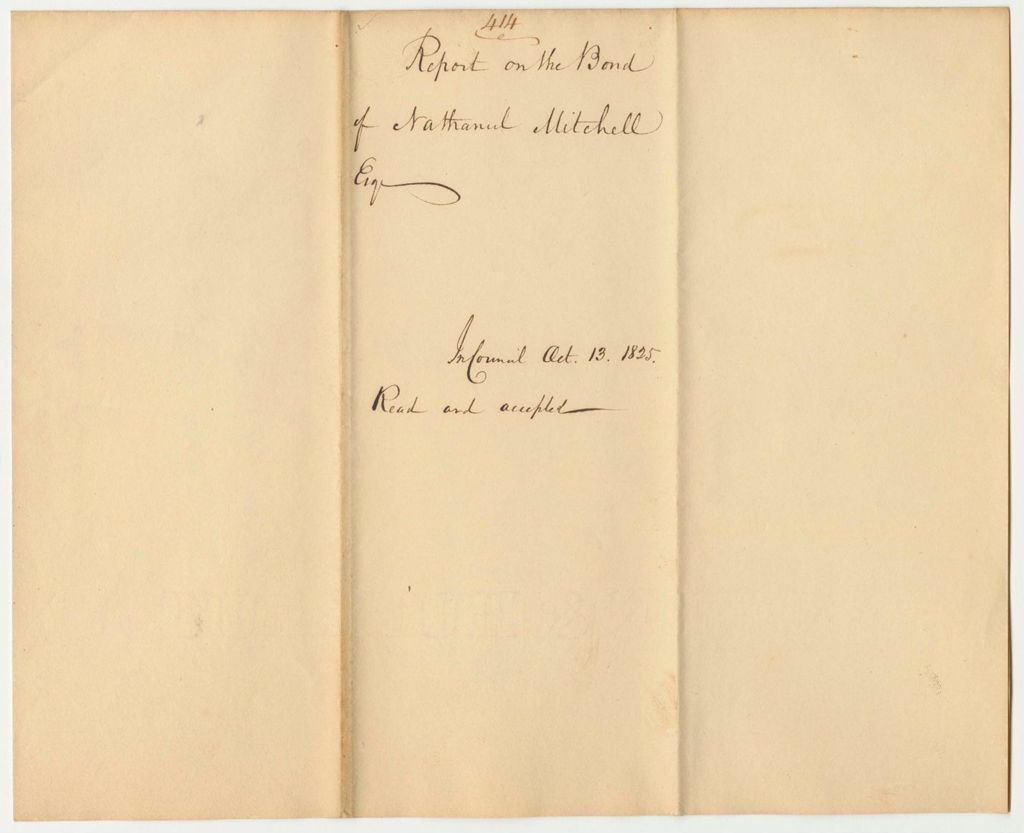 414
Report on the Bond
of Nathaniel Mitchell
Esqr
In Council Oct. 13. 1825.
Read and accepted